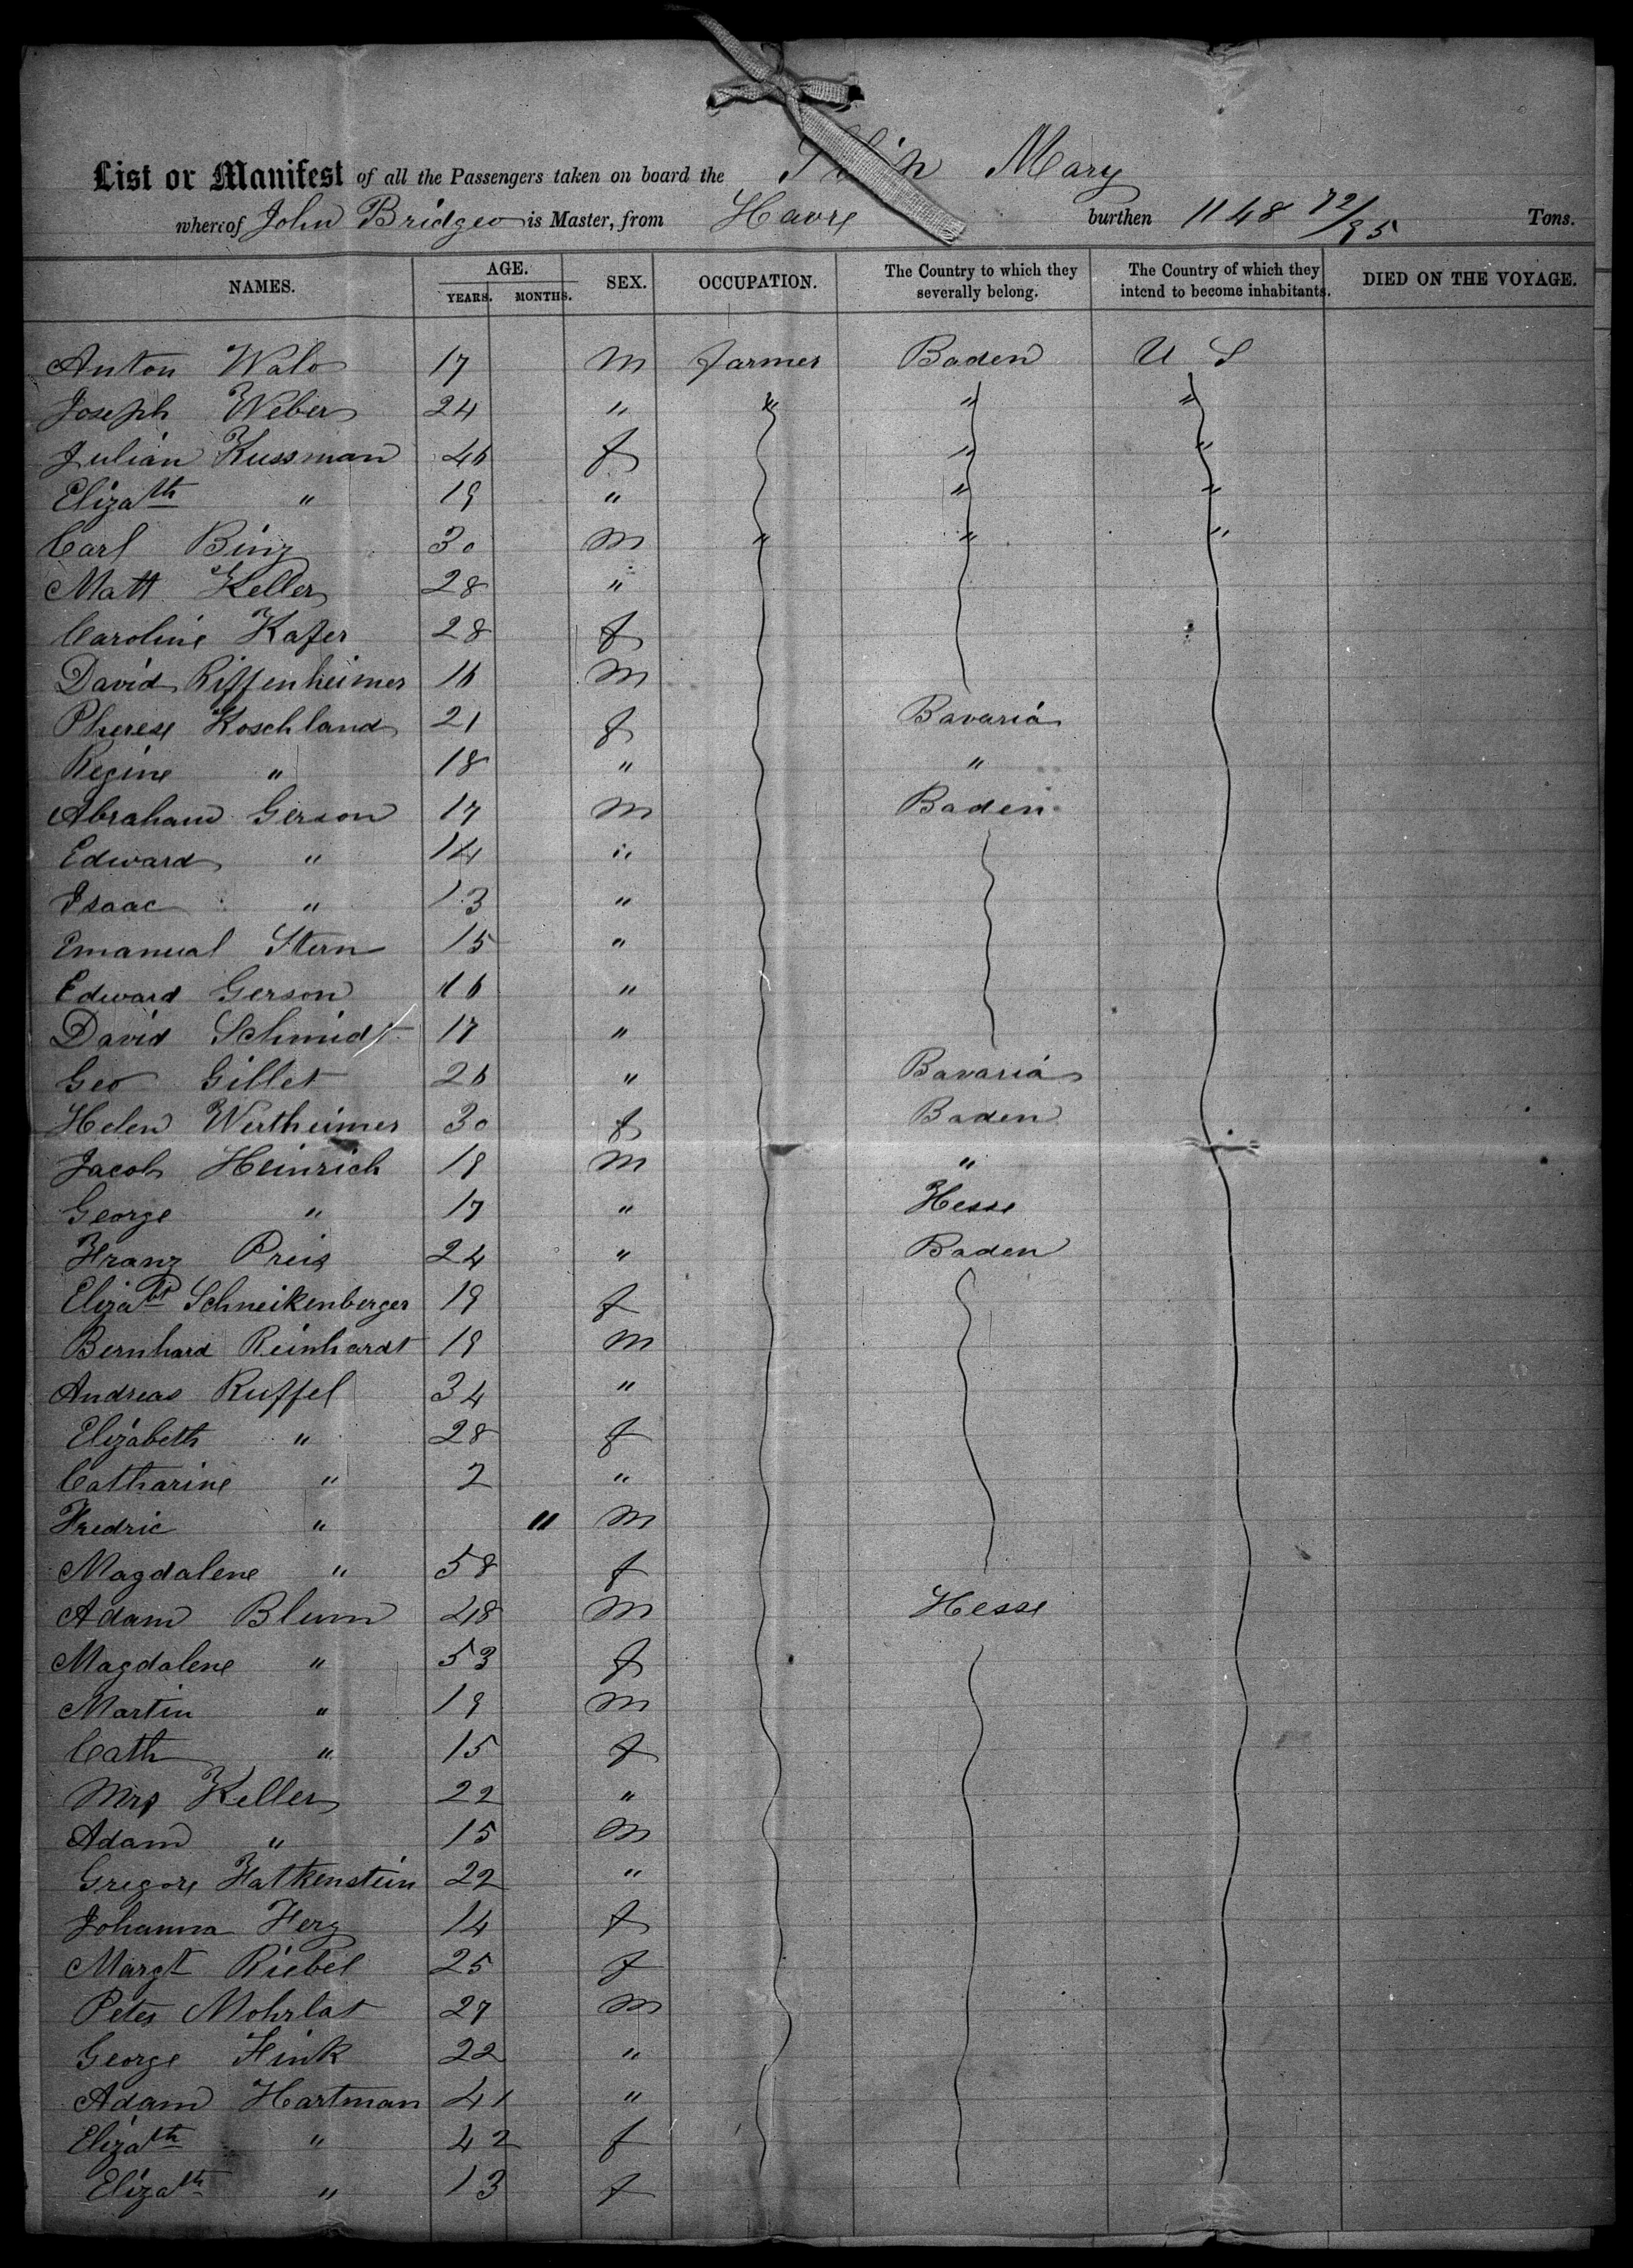 List or Manifest of all the Passengers taken on board the Ship Mary
whereof John Bridgeo is Master, from Havre burthen 1148 72/95 Tons.
NAMES. AGE. YEARS. MONTHS. SEX. OCCUPATION. The Country to which they severally belong. The Country of which they intend to become inhabitants. DIED ON THE VOYAGE.
Anton Walo 17 M farmer Baden U S
Joseph Weber 24 " " " "
Julian Kussman 46 f " "
Elizath " 19 " " "
Carl Binz 30 M " " "
Matt Keller 28 "
Caroline Kafer 28 f
David Riffenheimer 16 M
Pherese Koschland 21 f Bavaria
Regine " 18 " "
Abraham Gerson 17 M Baden
Edward " 14 "
Isaac " 13 "
Emanual Stern 15 "
Edward Gerson 16 "
David Schmidt 17 "
Geo Gillet 26 " Bavaria
Helen Wertheimer 30 f Baden
Jacob Heinrich 19 M "
George " 17 " Hesse
Franz Preis 24 " Baden
Elizabt Schneikenberger 19 f
Bernhard Reinhardt 19 M
Andreas Ruffel 34 "
Elizabeth " 28 f
Catharine " 2 "
Fredric " 11 M
Magdalene " 58 f
Adam Blum 48 M Hesse
Magdalene " 53 f
Martin " 19 M
Cath " 15 f
Mrs Keller 22 "
Adam " 15 M
Gregore Falkenstein 22 "
Johanna Herz 14 f
Margt Riebel 25 f
Peter Mohrlat 27 M
George Fink 22 "
Adam Hartman 41 "
Elizath " 42 f
Elizath " 13 f